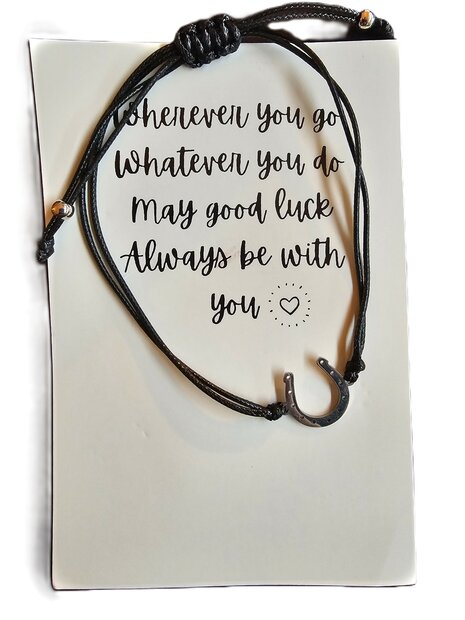 Wherever you go
Whatever you do
May good luck
Always be with
you